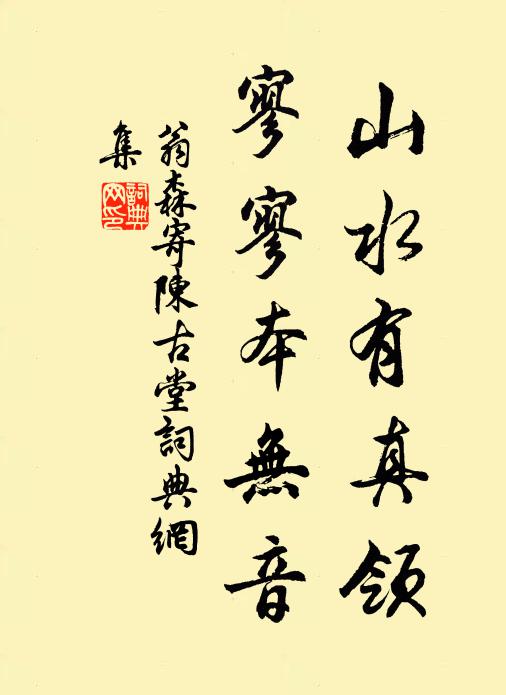 山水有真領
寥寥本無音
翁森寄陳古堂詞典網
集
詞典網印